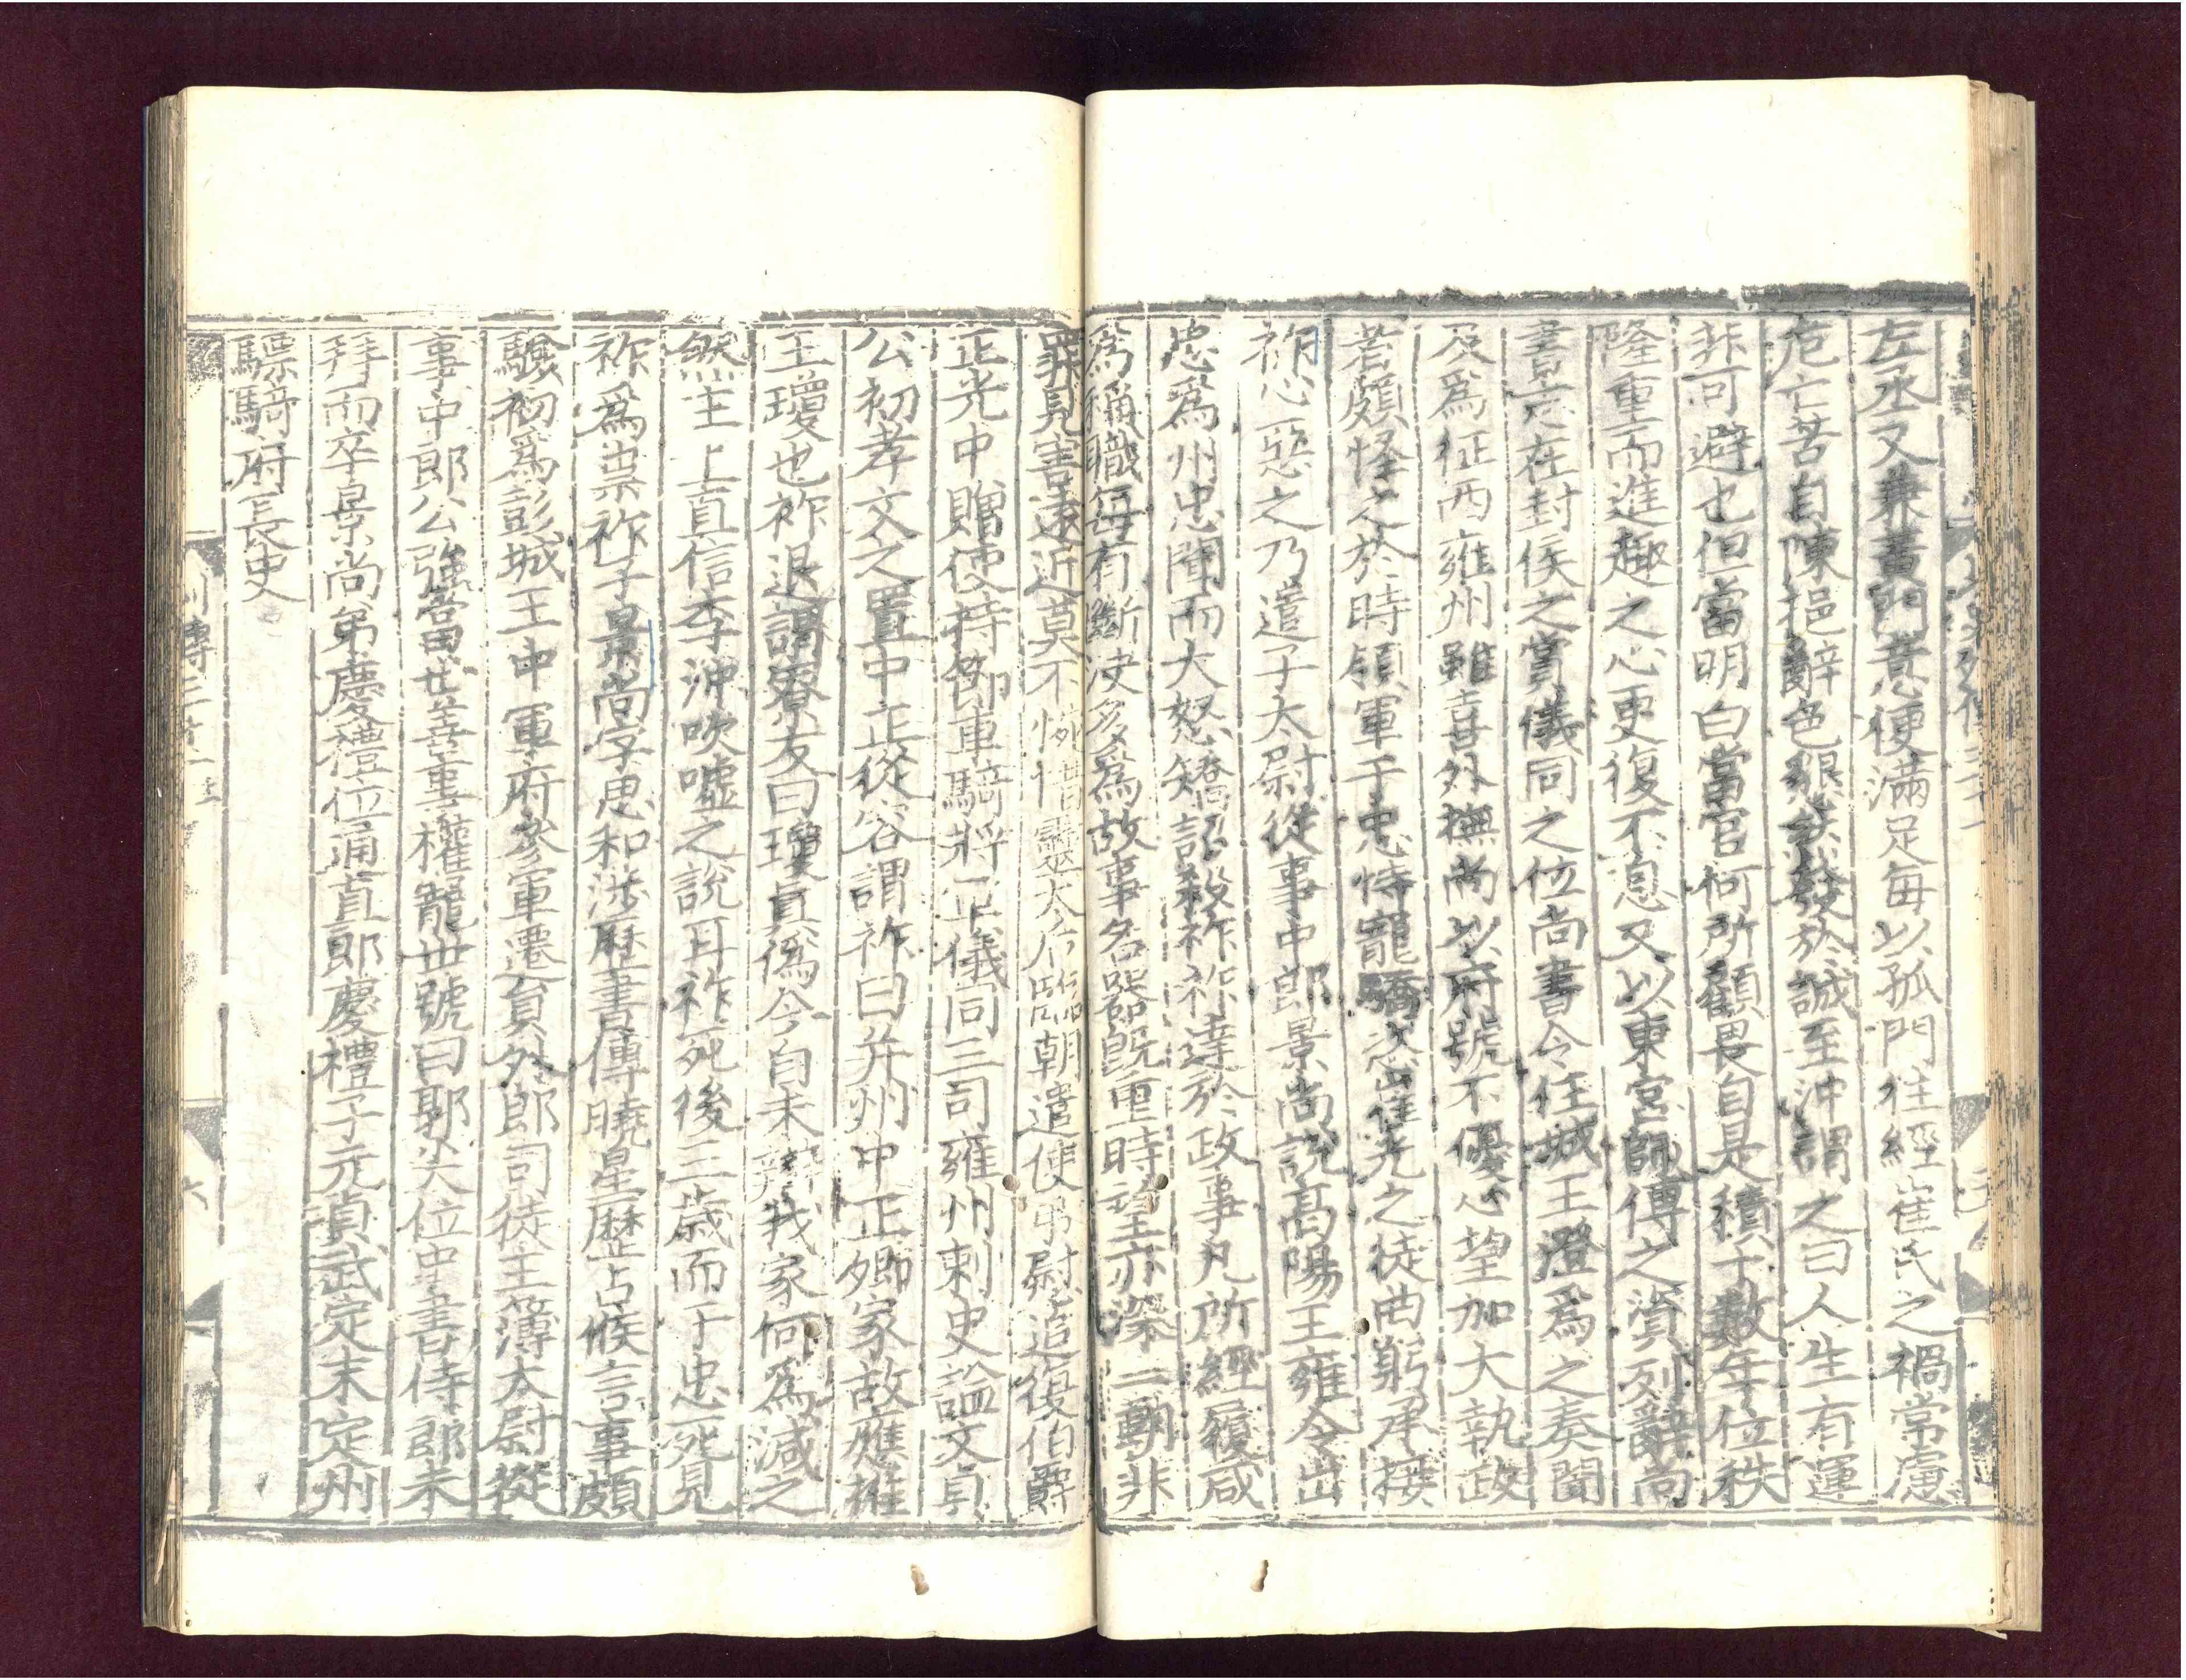 左丞又兼蕾門意便滿足每以孤門往經崔氏之禍常慮
危亡苦自陳挹辭色懇然發於誠至沖謂之曰人生有運
非可避也但當明白當官何所顧畏自是積十數年位秩
隆重而進趣之心更復不息又以東宮師傅之資列辭尚
書志在封侯之賞儀同之位尚書令任城王澄爲之奏聞
及爲征西雍州雖喜外撫尚以府號不優心望加大執政
者頗怪之於時領軍于忠恃寵驕恣崔光之徒曲躬承接
祚心惡之乃遣子太尉從事中郎景尚說高陽王雍令出
忠爲州忠聞而大怒矯詔殺祚祚達於政事凡所經履咸
爲稱職每有斷決多爲故事名器旣重時望亦深一朝非
罪見害遠近莫不惋惜靈太后臨朝遣使弔慰追復伯爵
正光中贈使持節車騎將軍儀同三司雍州刺史謚文貞
公初孝文之置中正從容謂祚曰幷州中正卿家故應推
王瓊也祚退謂寮友曰瓊眞僞今自未辨我家何爲減之
然主上直信李沖吹噓之說耳祚死後三歲而于忠死見
祚爲祟祚子景尚字思和涉歷書傳曉星歷占候言事頗
驗初爲彭城王中軍府參軍遷員外郎司徒主簿太尉從
事中郎公強當世善事權寵世號曰郭尖位中書侍郎未
拜而卒景尚弟慶禮位通直郎慶禮子元貞武定末定州
驃騎府長史